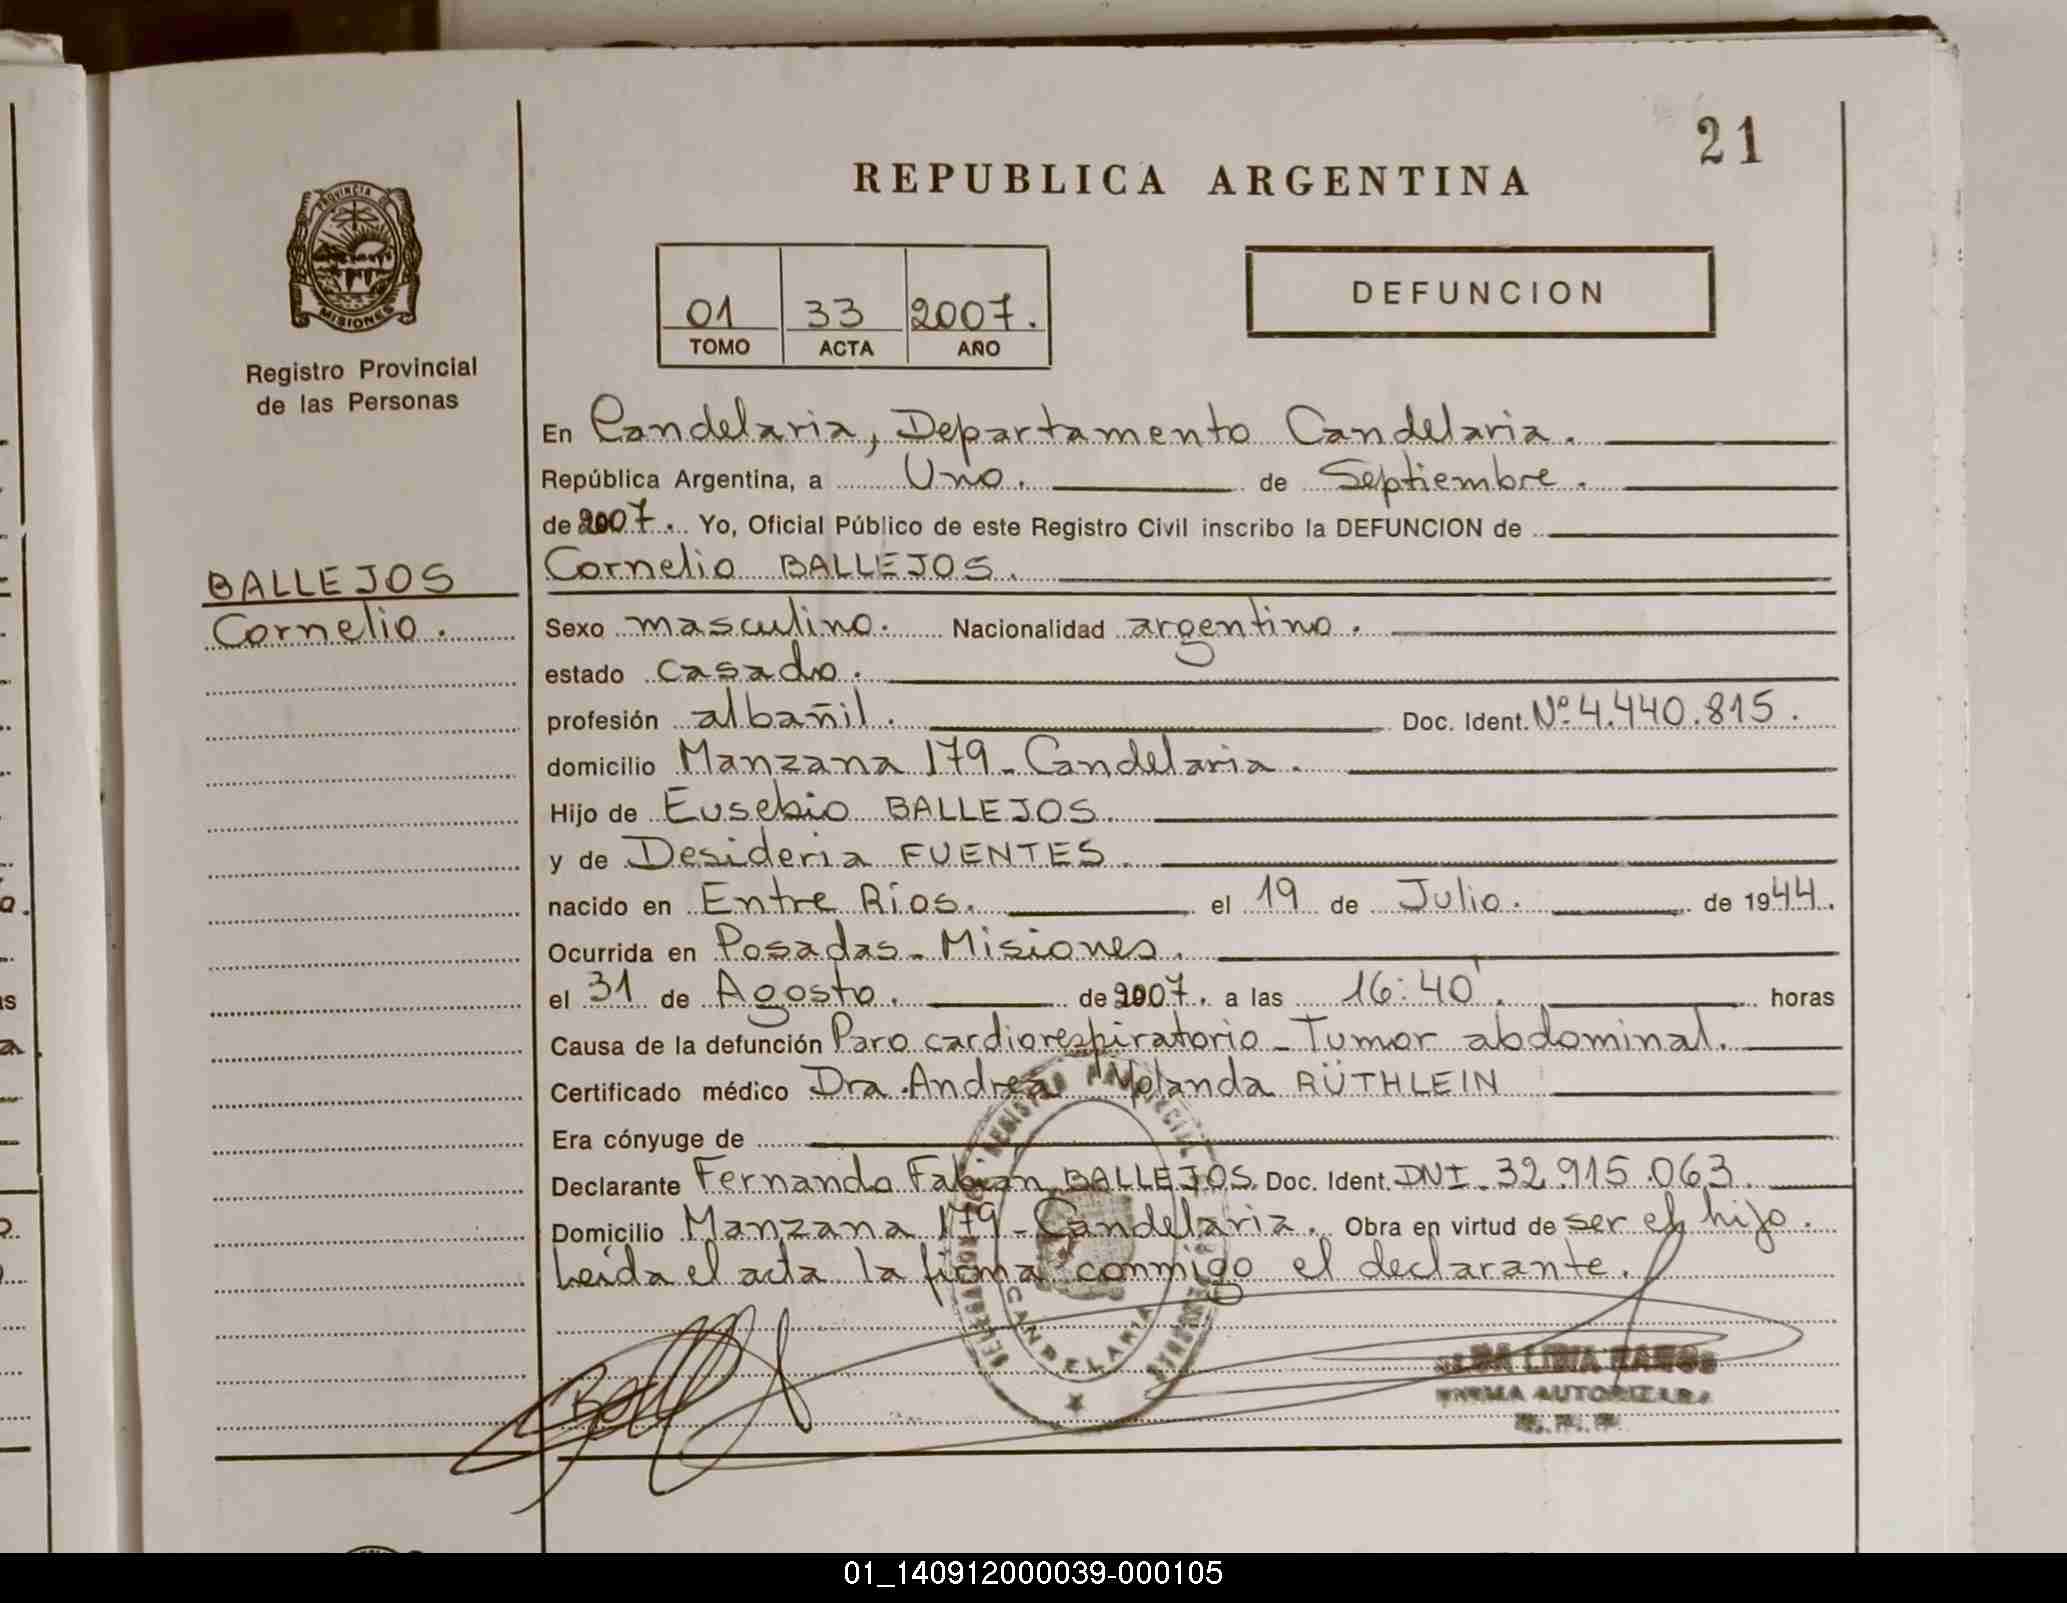 21
REPUBLICA ARGENTINA
PROVINCIA DE
MISIONES
Registro Provincial
de las Personas
01 33 2007.
TOMO ACTA AÑO
DEFUNCION
BALLEJOS
Cornelio.
En Candelaria, Departamento Candelaria.
República Argentina, a Uno. de Septiembre.
de 2007. Yo, Oficial Público de este Registro Civil inscribo la DEFUNCION de
Cornelio BALLEJOS.
Sexo masculino. Nacionalidad argentino.
estado casado.
profesión albañil. Doc. Ident. Nº 4.440.815.
domicilio Manzana 179 - Candelaria.
Hijo de Eusebio BALLEJOS
y de Desideria FUENTES
nacido en Entre Ríos. el 19 de Julio. de 1944.
Ocurrida en Posadas - Misiones.
el 31 de Agosto. de 2007. a las 16:40'. horas
Causa de la defunción Paro cardiorespiratorio - Tumor abdominal.
Certificado médico Dra. Andrea Yolanda RÜTHLEIN
Era cónyuge de
Declarante Fernando Fabian BALLEJOS. Doc. Ident. DNI. 32.915.063.
Domicilio Manzana 179 - Candelaria. Obra en virtud de ser el hijo.
Leída el acta la firma conmigo el declarante.
CANDELARIA
FIRMA AUTORIZADA
01_140912000039-000105